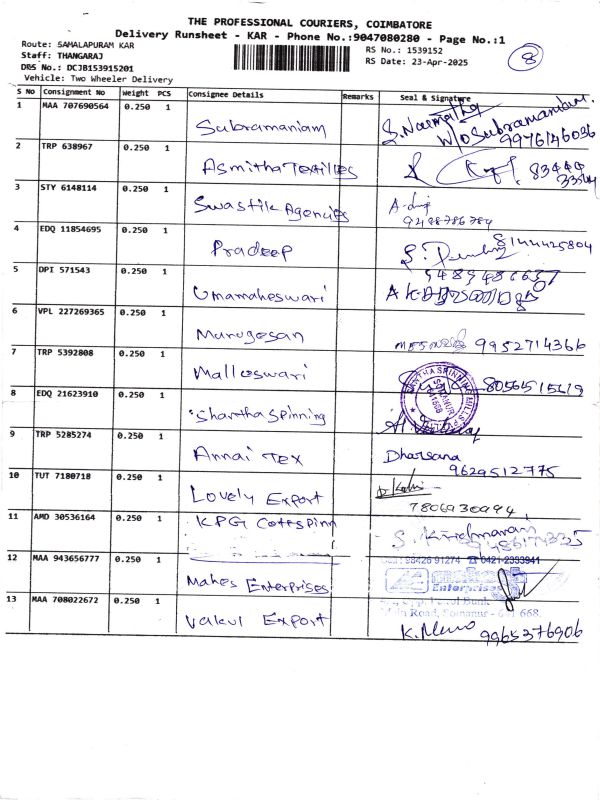 THE PROFESSIONAL COURIERS, COIMBATORE
Delivery Runsheet - KAR - Phone No.:9047080280 - Page No.:1
Route: SAMALAPURAM KAR
RS No.: 1539152
8
Staff: THANGARAJ
RS Date: 23-Apr-2025
DRS No.: DCJB153915201
Vehicle: Two Wheeler Delivery
S No Consignment No Weight PCS Consignee Details Remarks Seal & Signature
1 MAA 707690564 0.250 1 Subramaniam W/o Subramanium. 9976146036
2 TRP 638967 0.250 1 Asmitha Textilies
3 STY 6148114 0.250 1 Swastik Agencies 9498786784
4 EDQ 11854695 0.250 1 Pradeep 8144425804
5 DPI 571543 0.250 1 Umamaheswari
6 VPL 227269365 0.250 1 Murugesan 9952714366
7 TRP 5392808 0.250 1 Malleswari
8 EDQ 21623910 0.250 1 Shantha Spinning
9 TRP 5285274 0.250 1 Annai Tex Dharsana 9629512775
10 TUT 7180718 0.250 1 Lovely Export 7806930994
11 AMD 30536164 0.250 1 KPG S. Krishnaveni
12 MAA 943656777 0.250 1 Mahes Enterprises Cell : 98426 91274 ☎ 0421-2333941
Enterprises
13 MAA 708022672 0.250 1 Vakul Export 9965376906